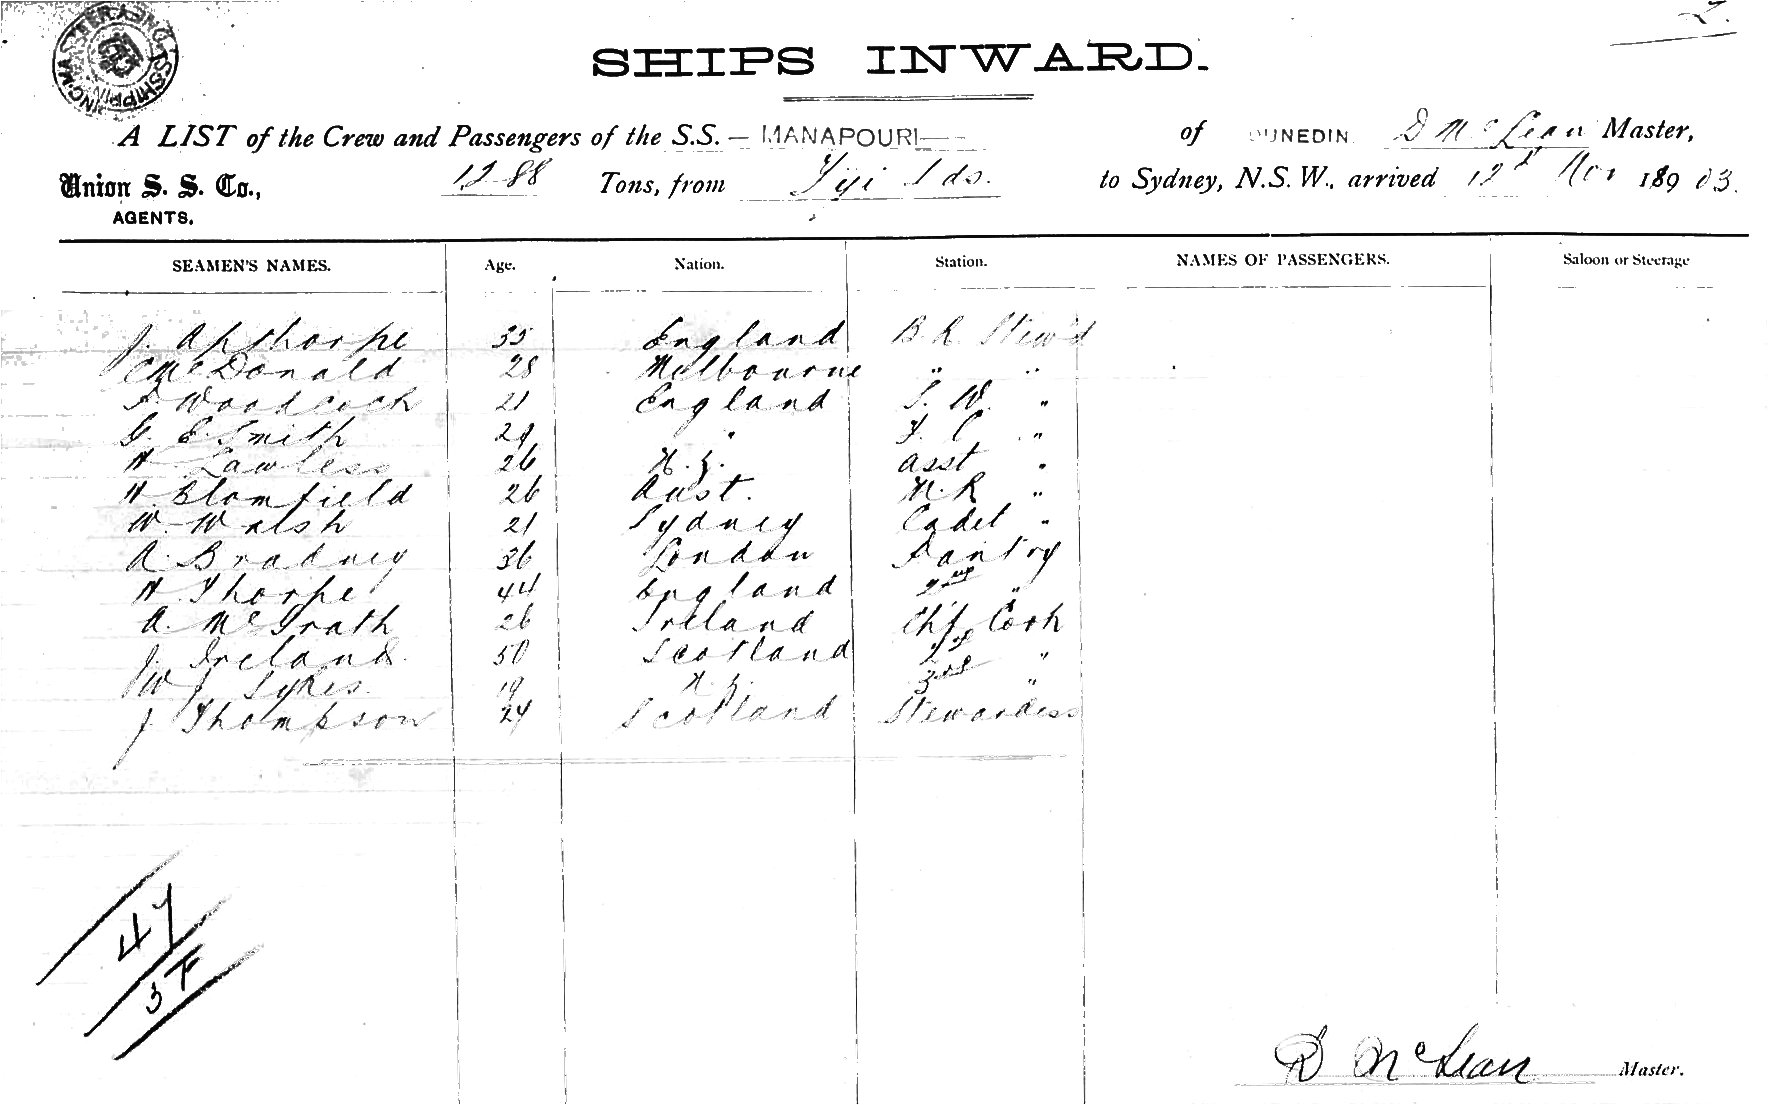 2.
SHIPS INWARD.
A LIST of the Crew and Passengers of the S.S. — MANAPOURI — of DUNEDIN D McLean Master,
Union S. S. Co., 1288 Tons, from Fiji Ids. to Sydney, N.S.W., arrived 12th Nov 18903.
AGENTS.
SEAMEN'S NAMES. Age. Nation. Station. NAMES OF PASSENGERS. Saloon or Steerage
J. Apthorpe 35 England B. R. Stew'd
C McDonald 28 Melbourne " "
F. Woodcock 21 England S. W. "
G. E. Smith 29 " F. C "
H Lawless 26 N. Z. Asst "
H. Blomfield 26 Aust. M. R "
W. Walsh 21 Sydney Cadet "
A. Bradney 36 London Pantry
H Thorpe 44 England 2nd "
A. McGrath 26 Ireland Chf Cook
J. Ireland 50 Scotland 2nd "
W J Sykes 19 N. Z. 3rd "
J. Thompson 24 Scotland Stewardess
47
3F
D McLean Master.